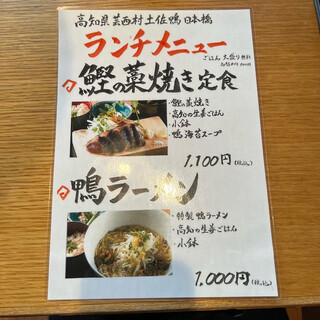 高知県 芸西村 土佐鴨 日本橋
ランチメニュー
ごはん 大盛り無料
鰹の藁焼き定食
・鰹の藁焼き
・高知の生姜ごはん
・小鉢
・鴨海苔スープ
1,100円(税込)
鴨ラーメン
・特製 鴨ラーメン
・高知の生姜ごはん
・小鉢
1,000円(税込)